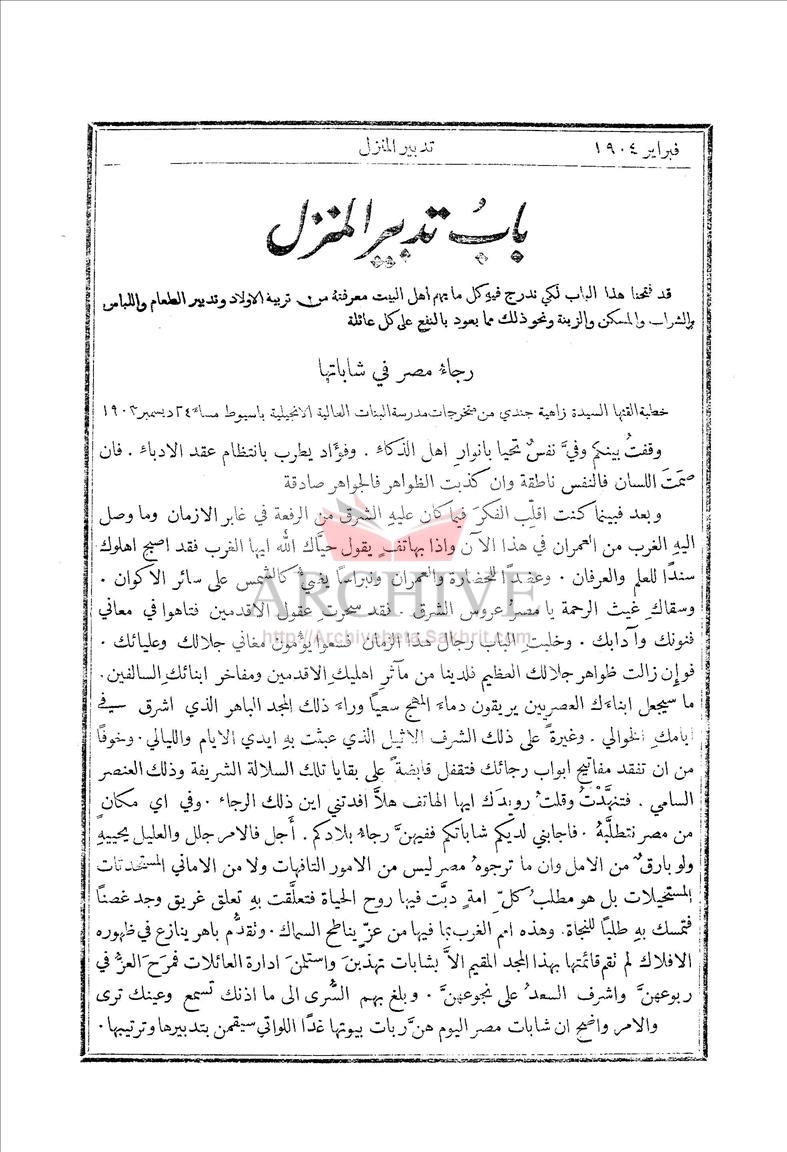 فبراير ١٩٠٤
تدبير المنزل
باب تدبير المنزل
قد فتحنا هذا الباب لكي ندرج فيه كل ما يهم اهل البيت معرفتهُ من تربية الاولاد وتدبير الطعام واللباس
والشراب والمسكن والزينة ونحو ذلك مما يعود بالنفع على كل عائلة
رجاءُ مصر في شاباتها
خطبة القتها السيدة زاهية جندي من متخرجات مدرسة البنات العالية الانجيلية باسيوط مساءَ ٢٤ ديسمبر ١٩٠٣
وقفتُ بينكم وفيَّ نفسٌ تحيا بانوارِ اهل الذكاء . وفوَّاد يطرب بانتظام عقد الادباء . فان
صمَتَ اللسان فالنفس ناطقة وان كذبت الظواهر فالجواهر صادقة
وبعد فبينما كنت اقلّب الفكرَ فيما كان عليهِ الشرق من الرفعة في غابر الازمان وما وصل
اليهِ الغرب من العمران في هذا الآن واذا بهاتفٍ يقول حيَّاك الله ايها الغرب فقد اصبح اهلوك
سندًا للعلم والعرفان . وعضدًا للحضارة والعمران ونبراساً يضيءُ كالشمس على سائر الاكوان .
وسقاكِ غيث الرحمة يا مصرُ عروس الشرق . فقد سحرتِ عقول الاقدمين فتاهوا في معاني
فنونك وآدابك . وخلبتِ الباب رجال هذا الزمان فسعوا يؤمّون مغاني جلالك وعليائك .
فوإن زالت ظواهر جلالك العظيم فلدينا من مآثرِ اهليكِ الاقدمين ومفاخر ابنائكِ السالفين .
ما سيجعل ابناءَك العصريين يريقون دماءَ المهج سعياً وراءَ ذلك المجد الباهر الذي اشرق في
ايامكِ الخوالي . وغيرةً على ذلك الشرف الاثيل الذي عبثت بهِ ايدي الايام والليالي . وخوفًا
من ان تفقد مفاتيح ابواب رجائك فتقفل قابضةً على بقايا تلك السلالة الشريفة وذلك العنصر
السامي . فتنهَّدْتُ وقلتُ رويدَك ايها الهاتف هلاَّ افدتني اين ذلك الرجاء . وفي اي مكان
من مصر نتطلَّبهُ . فاجابني لديكم شاباتكم ففيهنَّ رجاءُ بلادكم . أَجل فالامر جلل والعليل يحييهِ
ولو بارقٌ من الامل وان ما ترجوهُ مصر ليس من الامور التافهات ولا من الاماني المستحدثات
المستحيلات بل هو مطلبُ كلّ امةٍ دبَّت فيها روح الحياة فتعلَّقت بهِ تعلق غريق وجد غصنًا
فتمسك بهِ طلبًا للنجاة. وهذه امم الغرب بما فيها من عزٍّ يناطح السماك . وتقدُّم باهر ينازع في ظهوره
الافلاك لم تقم قائمتها بهذا المجد المقيم الاَّ بشابات تهذبنَ واستلمنَ ادارة العائلات فمرَحَ العزُّ في
ربوعهنَّ واشرف السعدُ على نجوعهنَّ . وبلغ بهم السُّرى الى ما اذنك تسمع وعينك ترى
والامر واضح ان شابات مصر اليوم هنَّ ربات بيوتها غدًا اللواتي سيقمن بتدبيرها وترتيبها .
ARCHIVE
http://Archivebeta.Sakhrit.com